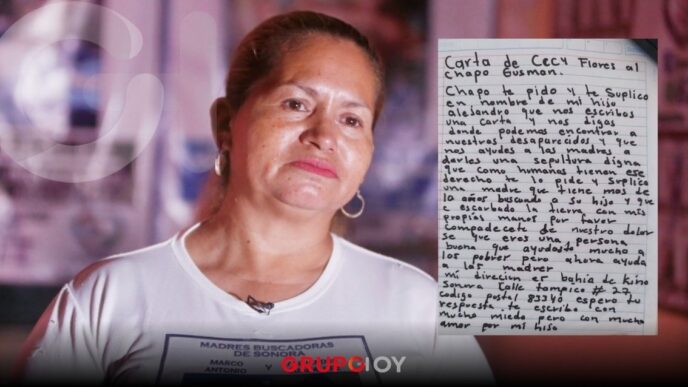 Carta de Cecy Flores al
chapo Gusman.
Chapo te pido y te Suplico
en nombre de mi hijo
alejandro que nos escribas
una carta y nos digas
donde podemos encontrar a
nuestros desaparecidos y que
nos ayudes a las madres a
darles una sepultura digna
que como humanos tienen ese
derecho te lo pide y suplica
una madre que tiene mas de
10 años buscando a su hijo y que
e escarbado la tierra con mis
propias manos por favor
compadecete de nuestro dolor
se que eres una persona
buena que ayudaste mucho a
los pobrer pero ahora ayuda
a las madrer
mi direcion es bahia de Kino
sonora Calle tampico # 27
codigo postal 83340 espero tu
respuesta te escribo con
mucho miedo pero con mucho
amor por mi hijo
MADRES BUSCADORAS
DE SONORA
MARCO
ANTONIO
Y
GRUPO HOY